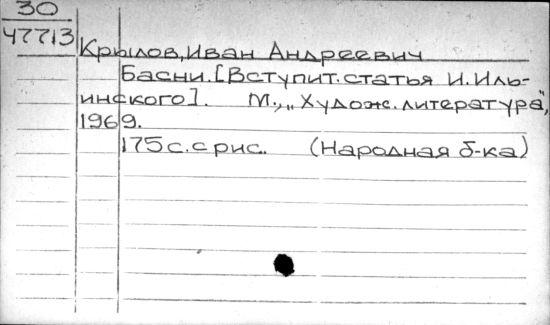 30
47713
Крылов, Иван Андреевич
Басни. [Вступит. статья И. Иль-
инского]. М., „Худож. литература",
1969.
175 с. с рис. (Народная б-ка)